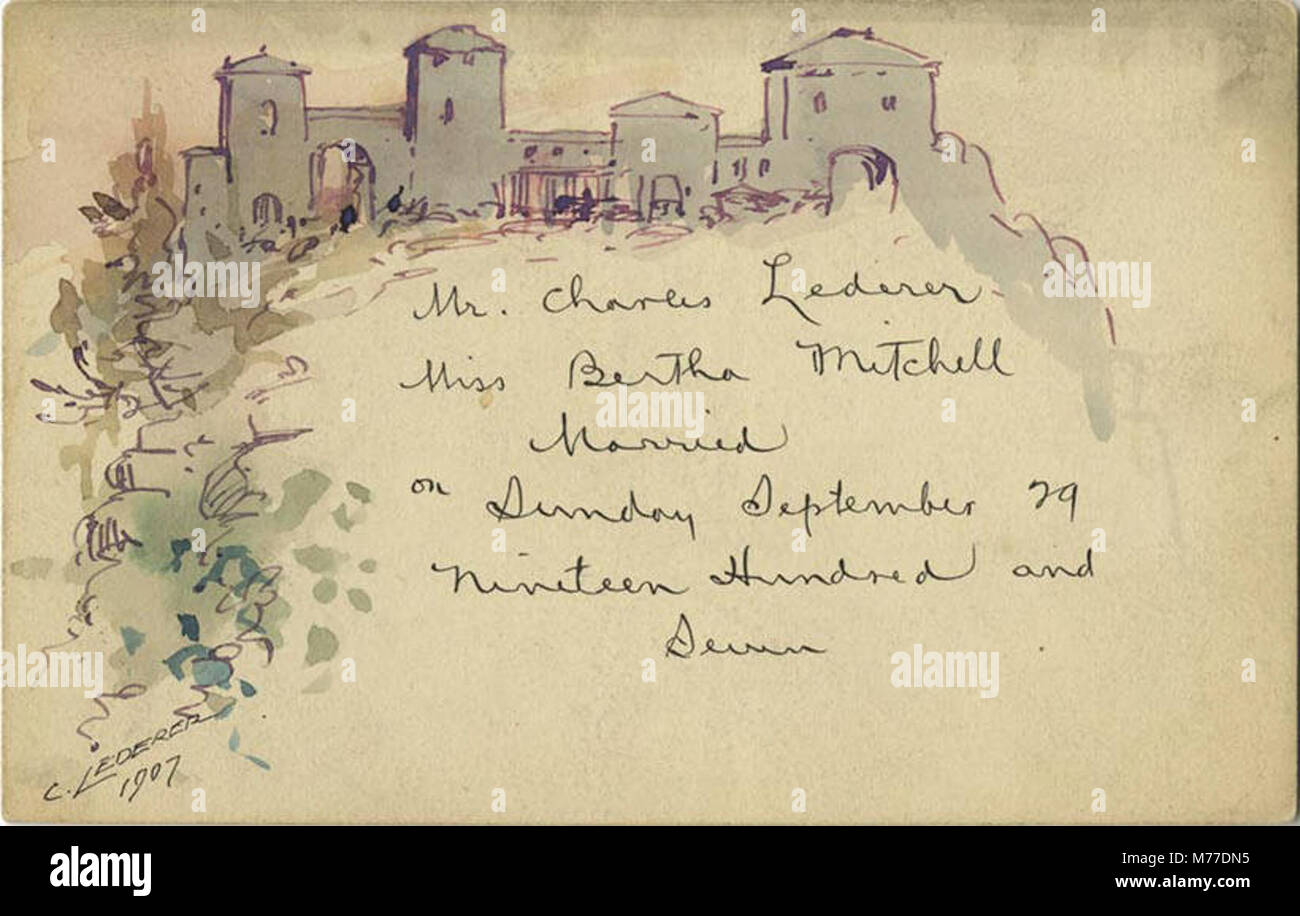 Mr. Charles Lederer
Miss Bertha Mitchell
Married
on Sunday September 29
Nineteen Hundred and
Seven
C. LEDERER
1907
a alamy stock photo
alamy
M77DN5
www.alamy.com